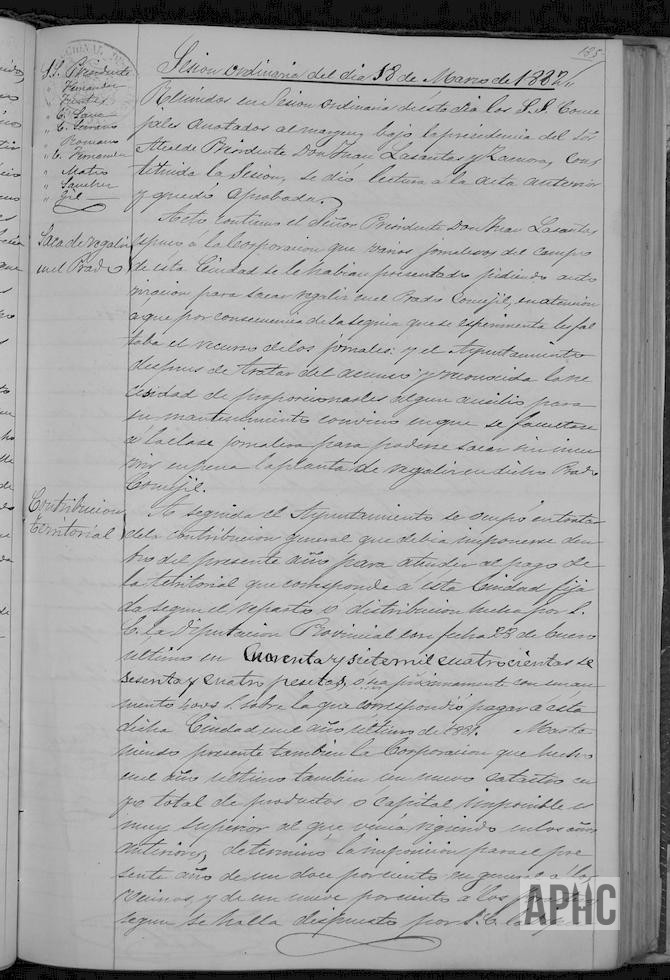 135
Sesion ordinaria del dia 18 de Marzo de 1882
S.S. Presidente
Fernandez
Fuertes
" C. Sanz
" C. Serrano
" Romano
" C. Fernandez
" Mateo
" Sanchez
" Gil
Reunidos en Sesion ordinaria de este dia los S.S. Conce
jales anotados al margen, bajo la presidencia del Sor
Alcalde Presidente Don Juan Lasantas y Zamora, Cons
tituida la Sesion, se dió lectura á la acta anterior
y quedó aprobada.
Saca de regaliz
en el Prado
Acto continuo el Señor Presidente Don Juan Lasantas
espuso á la Corporacion que varios jornaleros del campo
de esta Ciudad se le habian presentado pidiendo auto
rizacion para sacar regaliz en el Prado Concejil, en atencion
a que por consecuencia de la sequia que se esperimenta les fal
taba el recurso de los jornales: y el Ayuntamiento
despues de tratar del asunto y reconocida la ne
cesidad de proporcionarles algun ausilio para
su mantenimiento convino en que se facultase
á la clase jornalera para poderse sacar sin incu
rrir en pena la planta de regaliz en dicho Prado
Concejil.
Contribucion
territorial
E seguida el Ayuntamiento se ocupó en tratar
de la contribucion general que debia imponerse den
tro del presente año para atender al pago de
la territorial que corresponde á esta Ciudad fija
da segun el reparto ó distribucion hecha por S.
E. la Diputacion Provincial con fecha 28 de Enero
ultimo en Cuarenta y siete mil cuatrocientas se
sesenta y cuatro pesetas, ó sea próximamente con un au
mento sobre la que correspondió pagar á esta
dicha Ciudad en el año ultimo de 1881.
niendo presente tambien la Corporacion que hecho
en el año ultimo tambien un nuevo catastro cu
yo total de productos ó capital imponible es
muy superior al que venia rigiendo en los años
anteriores, determino la imposicion para el pre
sente año de un doce por ciento en general á los
vecinos, y de un nueve por ciento á los
segun se halla dispuesto por S.E. la
APHC